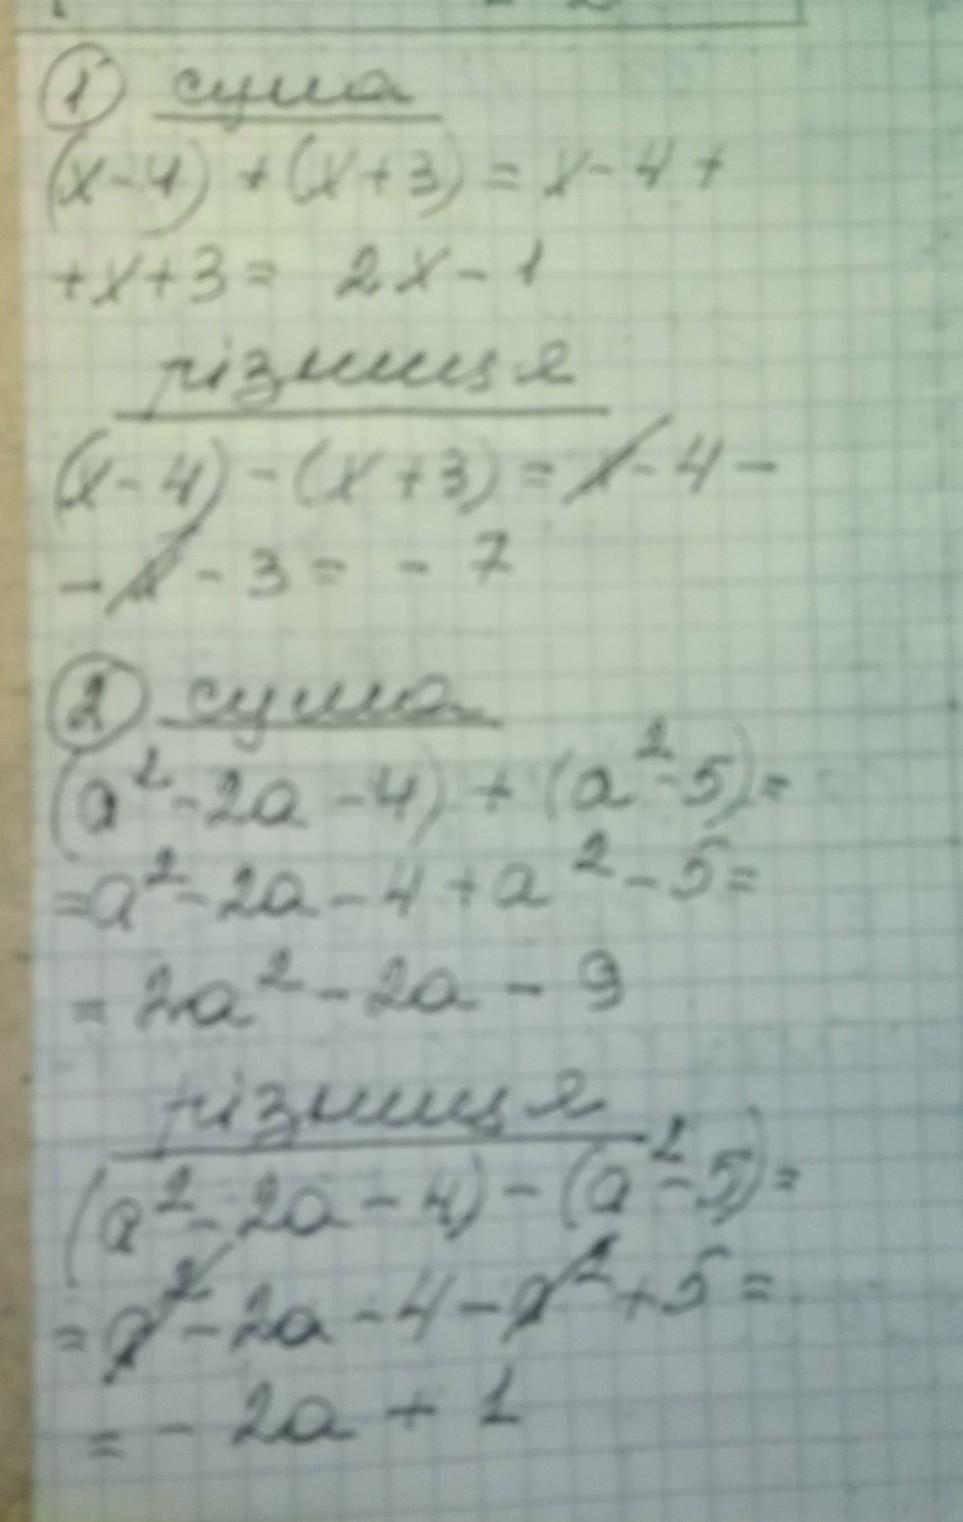 ① сума
(x-4) + (x+3) = x-4+
+x+3= 2x-1
різниця
(x-4)-(x+3)=x-4-
-x-3=-7
② сума
(a²-2a-4)+(a²-5)=
=a²-2a-4+a²-5=
=2a²-2a-9
різниця
(a²-2a-4)-(a²-5)=
=a²-2a-4-a²+5=
=-2a+1